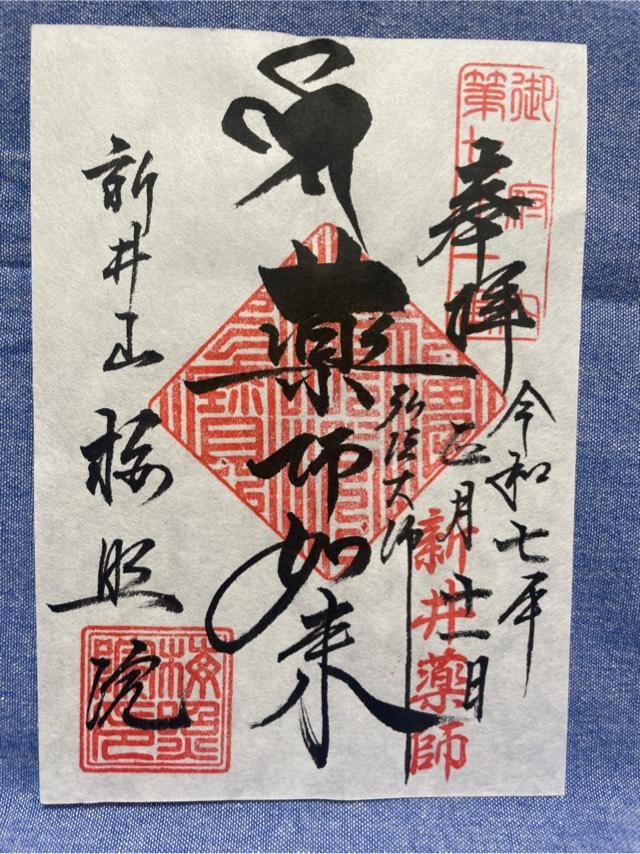 御府内
第七十一番
奉拝
令和七年
正月
新井薬師
弘法大師
薬師如来
新井山 梅照院
梅照
院印